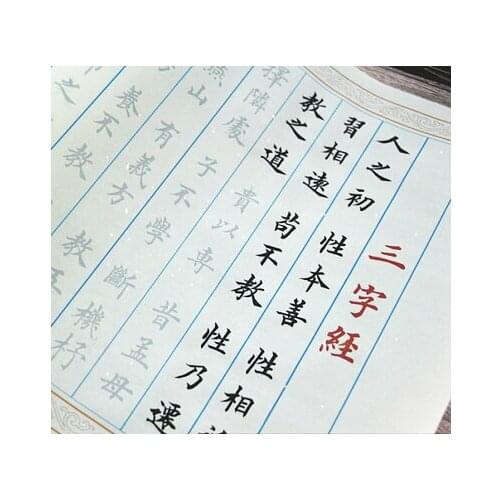 三字經
人之初 性本善 性相
習相遠 苟不教 性乃遷
教之道 貴以専 昔孟母
擇隣處 子不學 斷機杼
燕山 有義方 教五
養不教
之